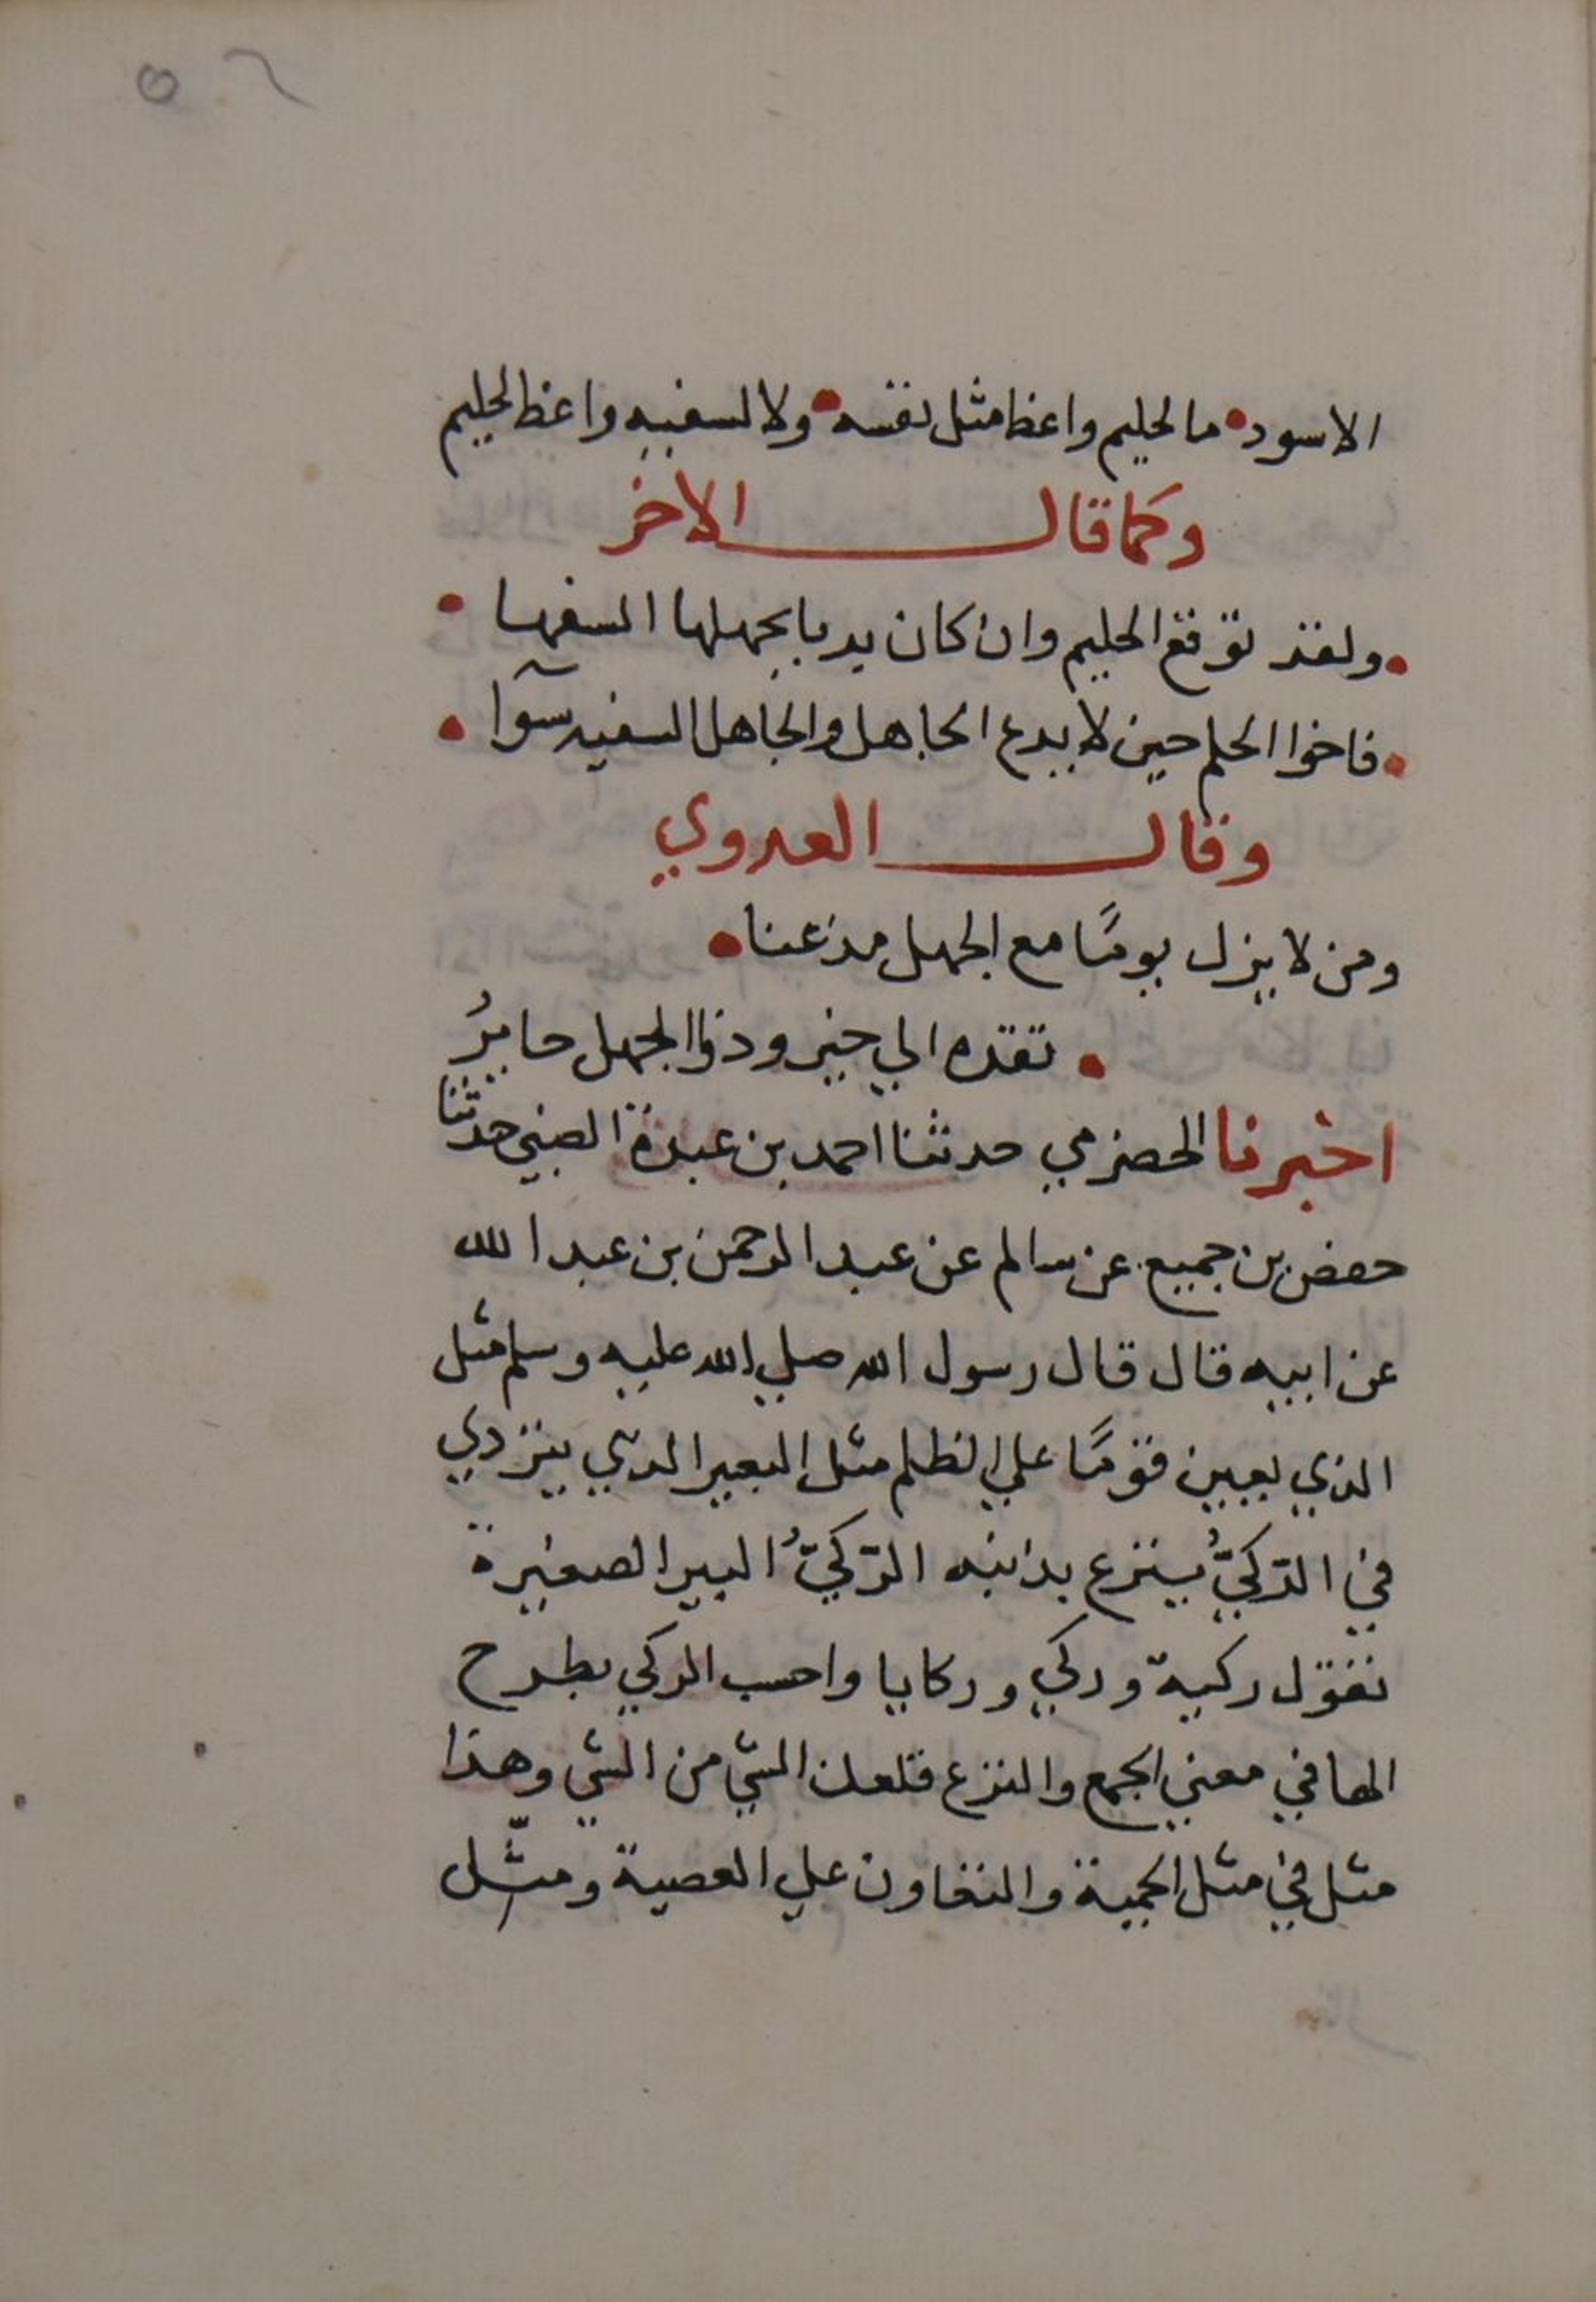 ٥٦
الاسود ما لحليم واعظا مثل نفسه ولا لسفيه واعظ الحليم
وكما قال الاخر
ولقد توقع الحليم وان كان يدبا بجهلها السفها
فاخوا الحلم حين لا يدع الجاهل والجاهل السفيه سوآ
وقال العدوي
ومن لا يزل يومًا مع الجهل مذعنا
تقده الي حين وذوا الجهل حايرُ
اخبرنا الحضرمي حدثنا احمد بن عبدة الضبي حدثنا
حفص بن جميع عن سالم عن عبد الرحمن بن عبد الله
عن ابيه قال قال رسول الله صلي الله عليه وسلم مثل
الذي يعين قومًا علي الظلم مثل البعير الذي يتردي
في الركيُّ ينزع بذنبه الركيُّ البير الصغيرة
تقول ركية وركي وركايا واحسب الركي بطرح
الها في معني الجمع والنزع قلعك الشي من الشي وهذا
مثل في مثل الحمية والتعاون علي العصبية ومثّل